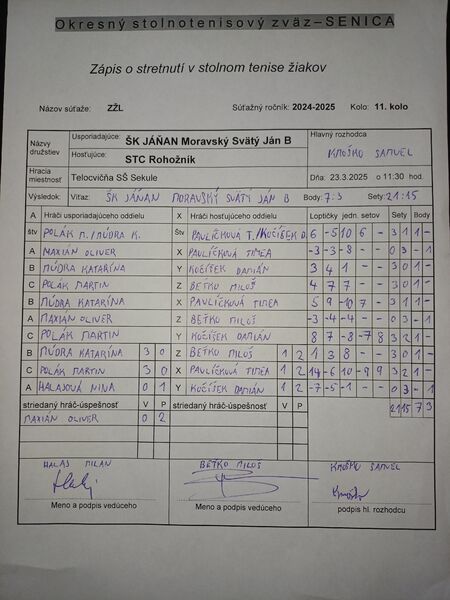 Okresný stolnotenisový zväz–SENICA
Zápis o stretnutí v stolnom tenise žiakov
Názov súťaže: ZŽL Súťažný ročník: 2024-2025 Kolo: 11. kolo
Názvy družstiev Usporiadajúce: ŠK JÁŇAN Moravský Svätý Ján B Hlavný rozhodca
Hosťujúce: STC Rohožník KMOŠKO SAMUEL
Hracia miestnosť Telocvičňa SŠ Sekule Dňa: 23.3.2025 o 11:30 hod.
Výsledok: Víťaz: ŠK JÁŇAN MORAVSKÝ SVÄTÝ JÁN B Body: 7:3 Sety: 21:15
A Hráči usporiadajúceho oddielu X Hráči hosťujúceho oddielu Loptičky jedn. setov Sety Body
štv POLÁK M./MÚDRA K. Štv PAVLÍČKOVÁ T./KUČÍŠEK D. 6 -5 10 6 - 3 1 1 -
A MAXIÁN OLIVER X PAVLÍČKOVÁ TIMEA -3 -3 -8 - - 0 3 - 1
B MÚDRA KATARÍNA Y KUČÍŠEK DAMIÁN 3 4 1 - - 3 0 1 -
C POLÁK MARTIN Z BEŤKO MILOŠ 4 7 7 - - 3 0 1 -
B MÚDRA KATARÍNA X PAVLÍČKOVÁ TIMEA 5 9 -10 7 - 3 1 1 -
A MAXIAN OLIVER Z BEŤKO MILOŠ -3 -4 -4 - - 0 3 - 1
C POLÁK MARTIN Y KUČÍŠEK DAMIÁN 8 7 -8 -7 8 3 2 1 -
B MÚDRA KATARÍNA 3 0 Z BEŤKO MILOŠ 1 2 1 3 8 - - 3 0 1 -
C POLÁK MARTIN 3 0 X PAVLÍČKOVÁ TIMEA 1 2 14 -6 10 -9 9 3 2 1 -
A HALASOVÁ NINA 0 1 Y KUČÍŠEK DAMIÁN 1 2 -7 -5 -1 - - 0 3 - 1
striedaný hráč-úspešnosť V P striedaný hráč-úspešnosť V P 21 15 7 3
MAXIÁN OLIVER 0 2
HALAS MILAN BEŤKO MILOŠ KMOŠKO SAMUEL
Meno a popis vedúceho Meno a popis vedúceho podpis hl. rozhodcu